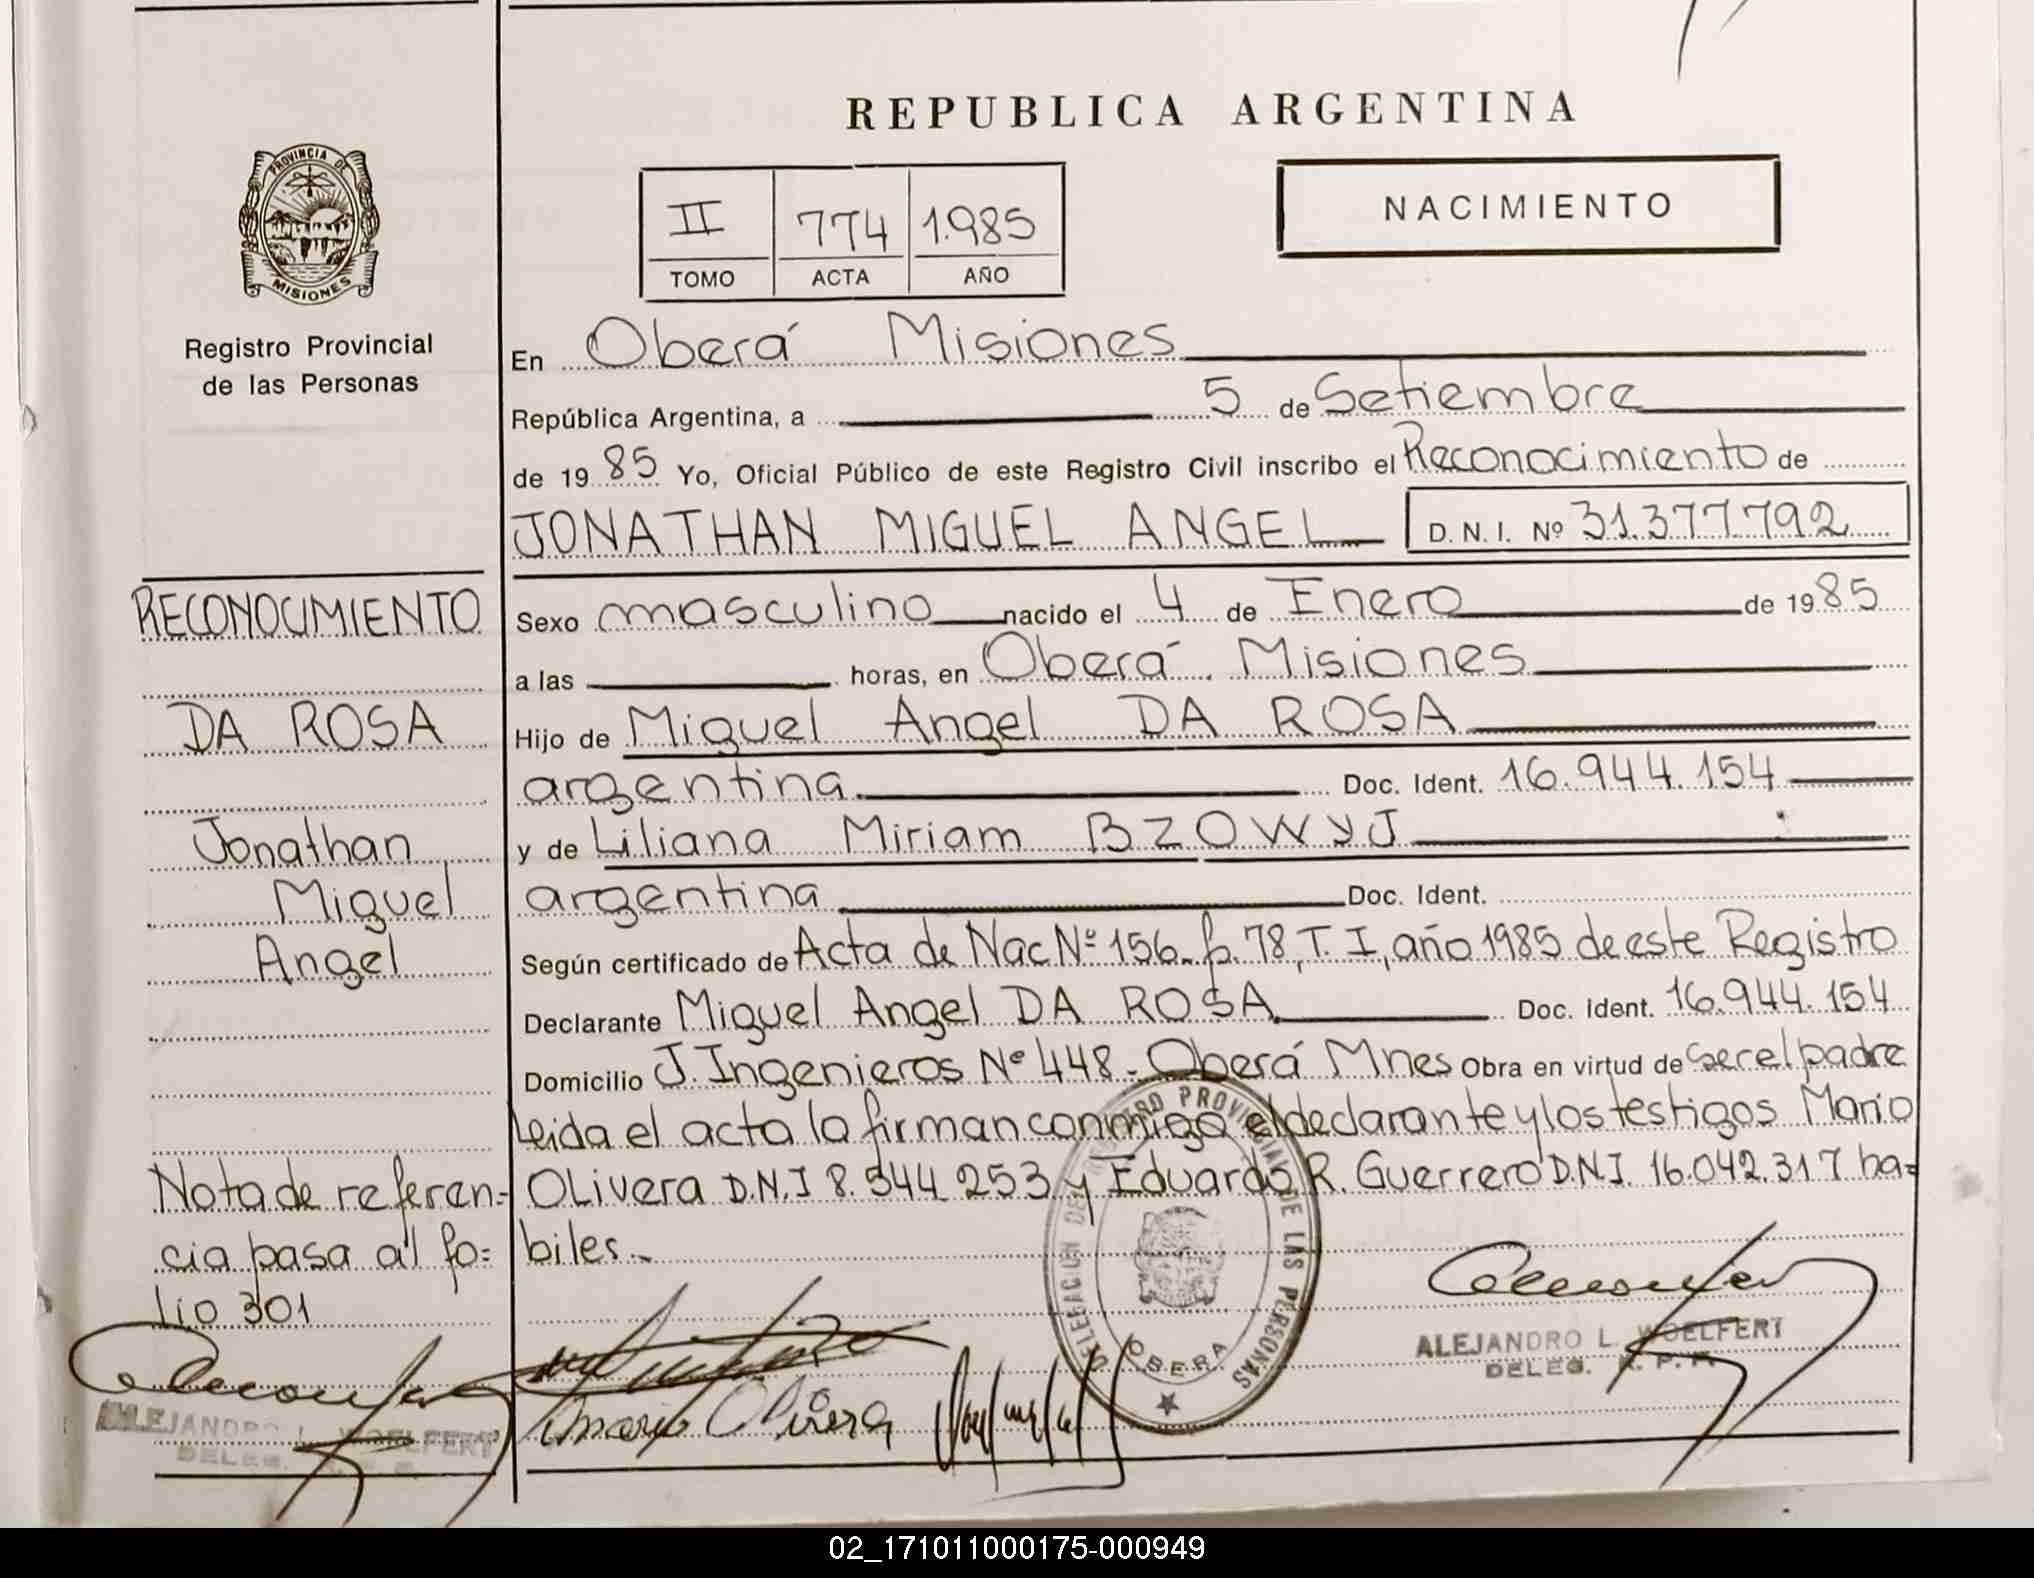 REPUBLICA ARGENTINA
PROVINCIA DE
MISIONES
Registro Provincial
de las Personas
II 774 1.985
TOMO ACTA AÑO
NACIMIENTO
En Oberá Misiones
República Argentina, a 5 de Setiembre
de 1985 Yo, Oficial Público de este Registro Civil inscribo el Reconocimiento de
JONATHAN MIGUEL ANGEL D.N.I. Nº 31.377.792
RECONOCIMIENTO
DA ROSA
Jonathan
Miguel
Angel
Nota de referen=
cia pasa al fo=
lio 301
ALEJANDRO L. WOELFERT
DELEG.
Sexo masculino nacido el 4 de Enero de 1985
a las horas, en Oberá Misiones
Hijo de Miguel Angel DA ROSA
argentina Doc. Ident. 16.944.154
y de Liliana Miriam BZOWYJ
argentina Doc. Ident.
Según certificado de Acta de Nac Nº 156. f. 78, T. I, año 1985 de este Registro
Declarante Miguel Angel DA ROSA Doc. Ident. 16.944.154
Domicilio J. Ingenieros Nº 448 - Oberá Mnes Obra en virtud de ser el padre
Leida el acta la firman conmigo el declarante y los testigos Mario
OLivera D.N.I 8.544.253 y Eduardo R. Guerrero D.N.I. 16.042.317 ha=
biles.-
DELEGACION DEL REGISTRO PROVINCIAL DE LAS PERSONAS
OBERA
Mario Olivera
ALEJANDRO L. WOELFERT
DELEG. R. P. P.
02_171011000175-000949